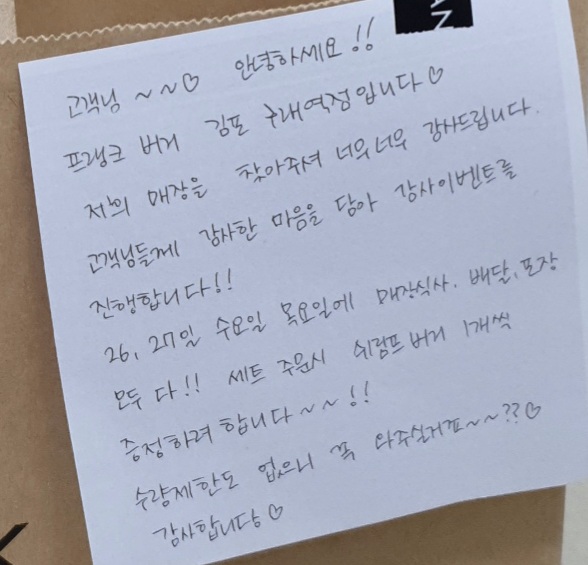 고객님 ~~♡ 안녕하세요!!
프랭크 버거 김포 구래역점입니다♡
저희 매장을 찾아주셔 너무너무 감사드립니다.
고객님들께 감사한 마음을 담아 감사이벤트를
진행합니다!!
26, 27일 수요일 목요일에 매장식사, 배달, 포장
모두 다!! 세트 주문시 쉬림프버거 1개씩
증정하려 합니다~~!!
수량제한도 없으니 꼭 와주실거죠~~??♡
감사합니당♡